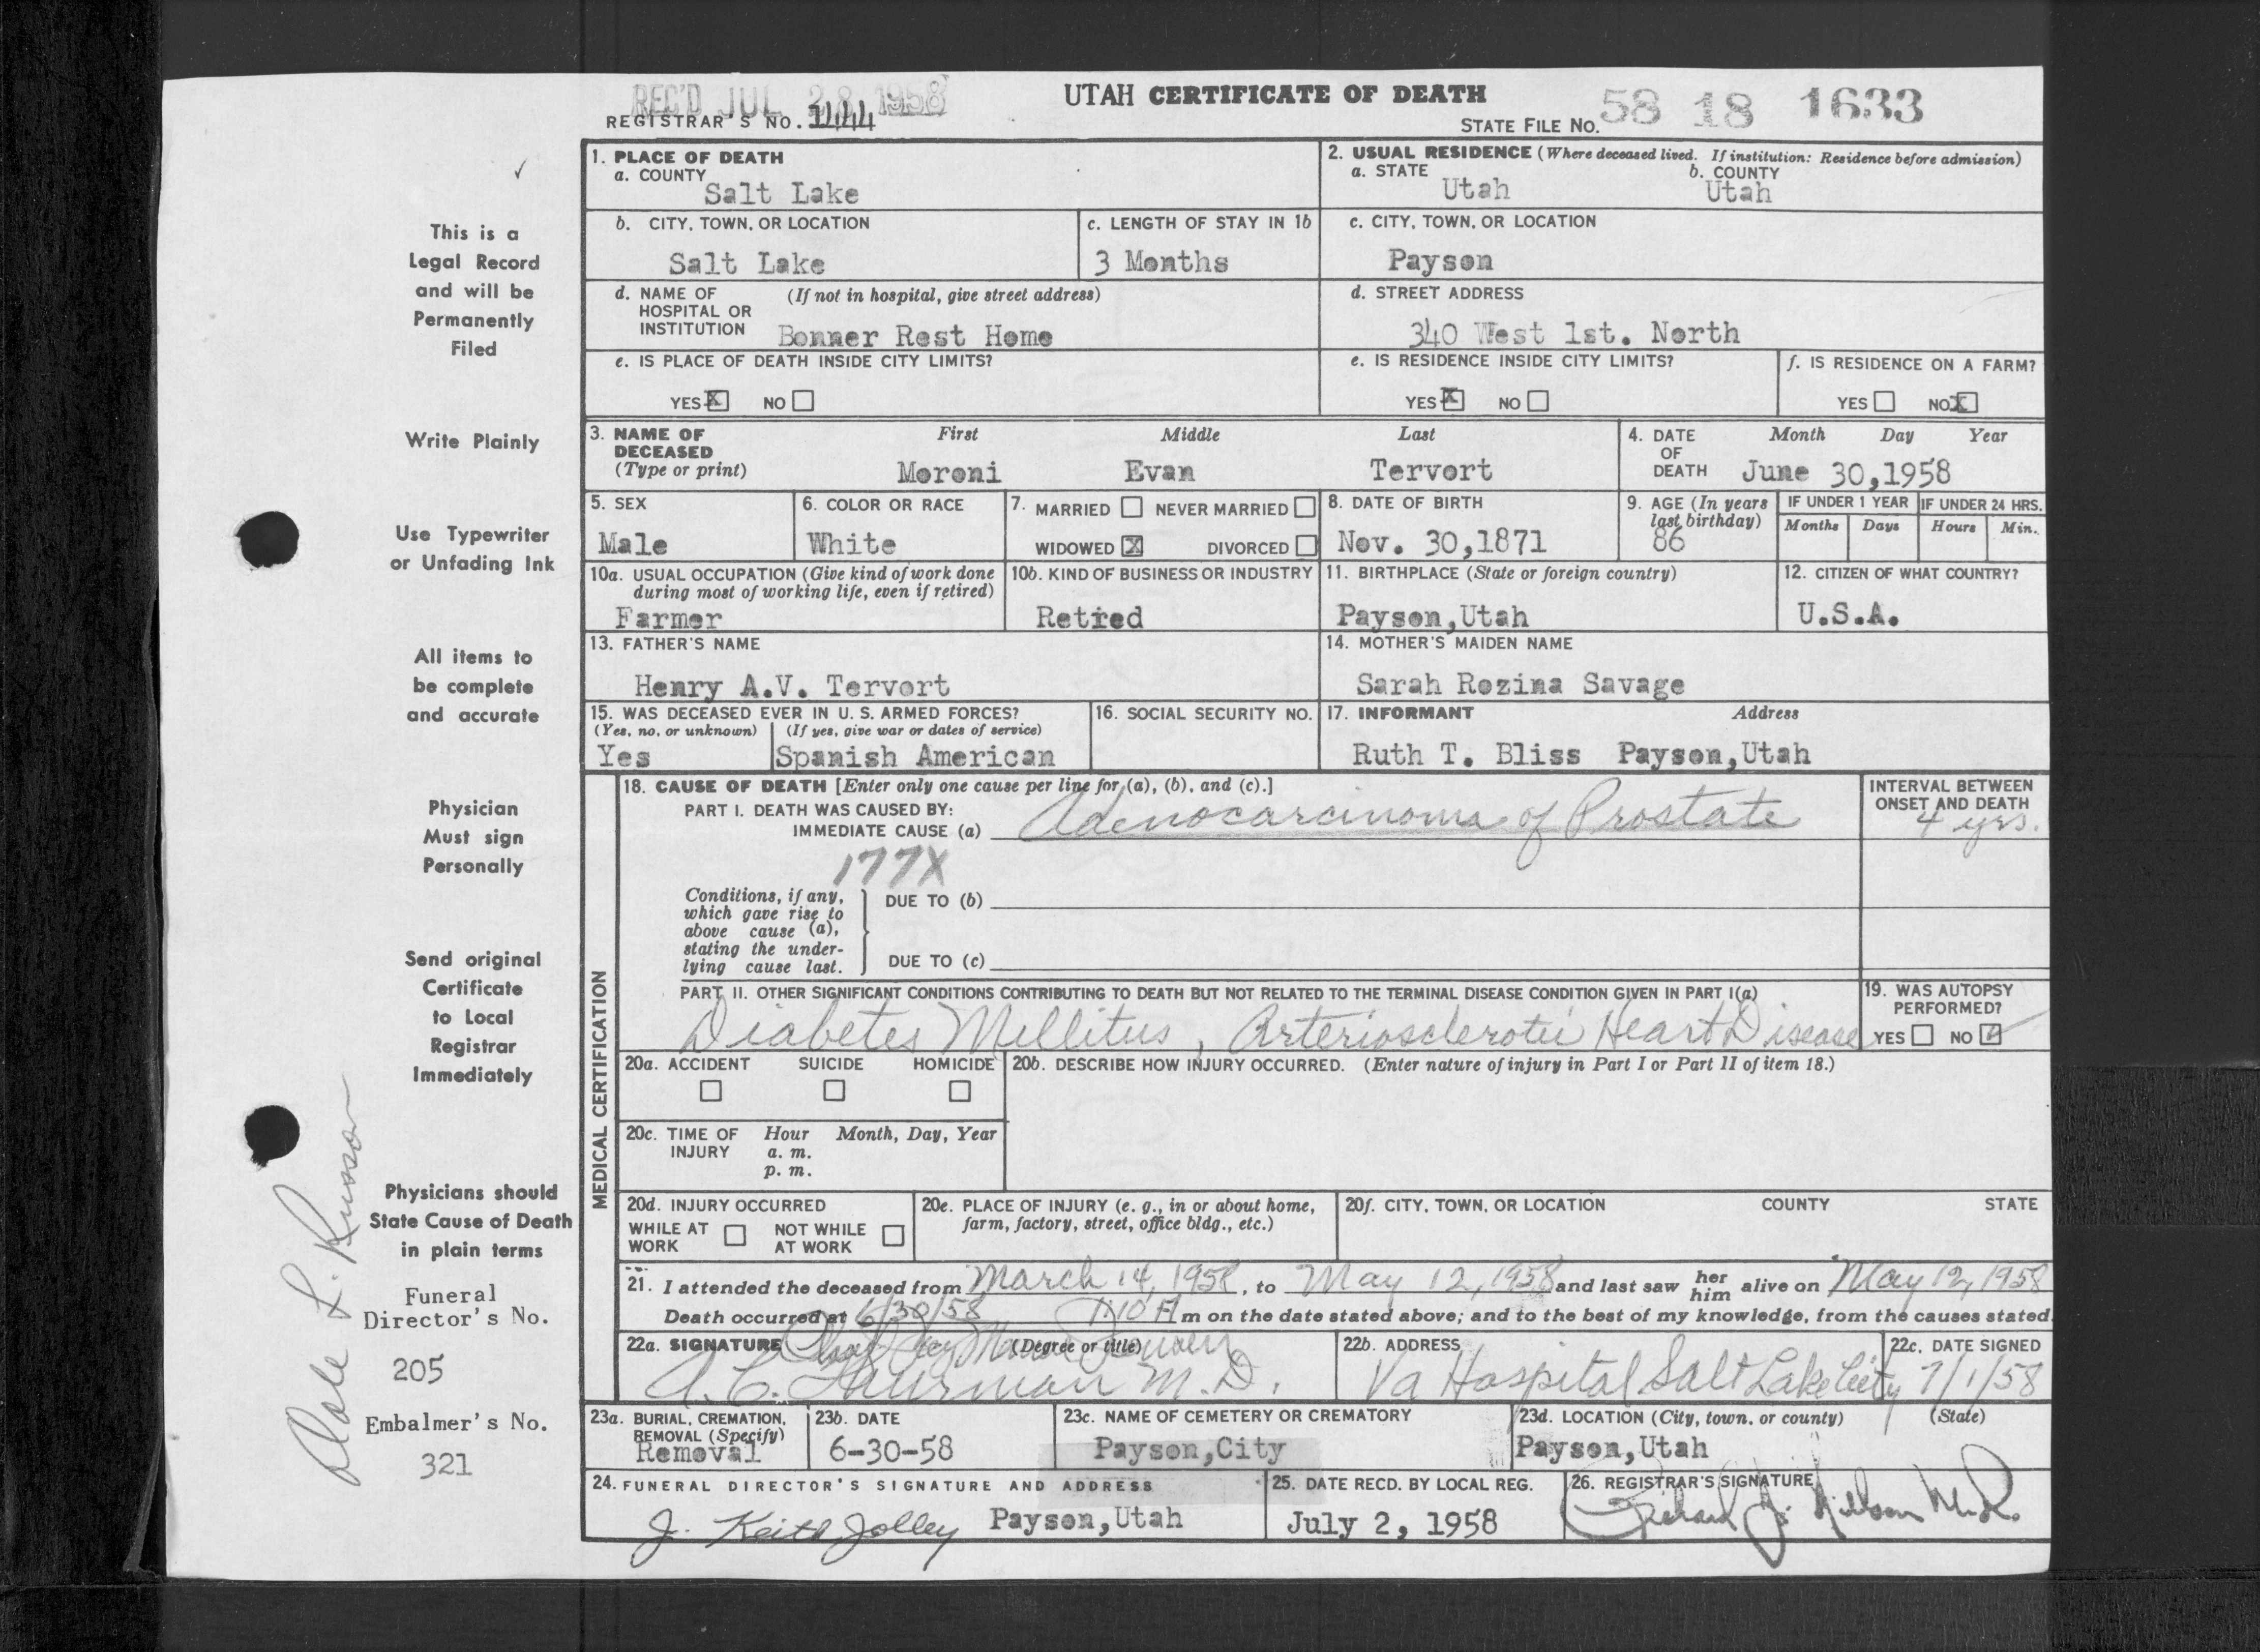 REC'D JUL 28 1958
UTAH CERTIFICATE OF DEATH
REGISTRAR'S NO. 1144
STATE FILE NO. 58 18 1633
This is a
Legal Record
and will be
Permanently
Filed
Write Plainly
Use Typewriter
or Unfading Ink
All items to
be complete
and accurate
Physician
Must sign
Personally
Send original
Certificate
to Local
Registrar
Immediately
Physicians should
State Cause of Death
in plain terms
Funeral
Director's No.
205
Embalmer's No.
321
Dale L.
1. PLACE OF DEATH
a. COUNTY
Salt Lake
2. USUAL RESIDENCE (Where deceased lived. If institution: Residence before admission)
a. STATE b. COUNTY
Utah Utah
b. CITY, TOWN, OR LOCATION
Salt Lake
c. LENGTH OF STAY IN 1b
3 Months
c. CITY, TOWN, OR LOCATION
Payson
d. NAME OF (If not in hospital, give street address)
HOSPITAL OR
INSTITUTION Bonner Rest Home
d. STREET ADDRESS
340 West 1st. North
e. IS PLACE OF DEATH INSIDE CITY LIMITS?
YES X NO
e. IS RESIDENCE INSIDE CITY LIMITS?
YES X NO
f. IS RESIDENCE ON A FARM?
YES NO X
3. NAME OF First Middle Last
DECEASED
(Type or print) Moroni Evan Tervort
4. DATE Month Day Year
OF
DEATH June 30,1958
5. SEX
Male
6. COLOR OR RACE
White
7. MARRIED NEVER MARRIED
WIDOWED X DIVORCED
8. DATE OF BIRTH
Nov. 30,1871
9. AGE (In years
last birthday)
86
IF UNDER 1 YEAR
Months Days
IF UNDER 24 HRS.
Hours Min.
10a. USUAL OCCUPATION (Give kind of work done
during most of working life, even if retired)
Farmer
10b. KIND OF BUSINESS OR INDUSTRY
Retired
11. BIRTHPLACE (State or foreign country)
Payson,Utah
12. CITIZEN OF WHAT COUNTRY?
U.S.A.
13. FATHER'S NAME
Henry A.V. Tervort
14. MOTHER'S MAIDEN NAME
Sarah Rozina Savage
15. WAS DECEASED EVER IN U. S. ARMED FORCES?
(Yes, no, or unknown) (If yes, give war or dates of service)
Yes Spanish American
16. SOCIAL SECURITY NO.
17. INFORMANT Address
Ruth T. Bliss Payson,Utah
MEDICAL CERTIFICATION
18. CAUSE OF DEATH [Enter only one cause per line for (a), (b), and (c).]
PART I. DEATH WAS CAUSED BY:
IMMEDIATE CAUSE (a) Adenocarcinoma of Prostate
INTERVAL BETWEEN
ONSET AND DEATH
4 yrs.
177X
Conditions, if any,
which gave rise to
above cause (a),
stating the under-
lying cause last.
DUE TO (b)
DUE TO (c)
PART II. OTHER SIGNIFICANT CONDITIONS CONTRIBUTING TO DEATH BUT NOT RELATED TO THE TERMINAL DISEASE CONDITION GIVEN IN PART I(a)
Diabetes Mellitus, Arteriosclerotic Heart Disease
19. WAS AUTOPSY
PERFORMED?
YES NO
20a. ACCIDENT SUICIDE HOMICIDE
20b. DESCRIBE HOW INJURY OCCURRED. (Enter nature of injury in Part I or Part II of item 18.)
20c. TIME OF Hour Month, Day, Year
INJURY a. m.
p. m.
20d. INJURY OCCURRED
WHILE AT WORK NOT WHILE AT WORK
20e. PLACE OF INJURY (e. g., in or about home,
farm, factory, street, office bldg., etc.)
20f. CITY, TOWN, OR LOCATION COUNTY STATE
21. I attended the deceased from March 14, 1958, to May 12, 1958 and last saw her him alive on May 12, 1958
Death occurred at 6/30/58 1:10 A m on the date stated above; and to the best of my knowledge, from the causes stated.
22a. SIGNATURE (Degree or title)
M.D.
22b. ADDRESS
Va Hospital Salt Lake City
22c. DATE SIGNED
7/1/58
23a. BURIAL, CREMATION,
REMOVAL (Specify)
Removal
23b. DATE
6-30-58
23c. NAME OF CEMETERY OR CREMATORY
Payson,City
23d. LOCATION (City, town, or county) (State)
Payson,Utah
24. FUNERAL DIRECTOR'S SIGNATURE AND ADDRESS
J. Keith Jolley Payson,Utah
25. DATE RECD. BY LOCAL REG.
July 2, 1958
26. REGISTRAR'S SIGNATURE